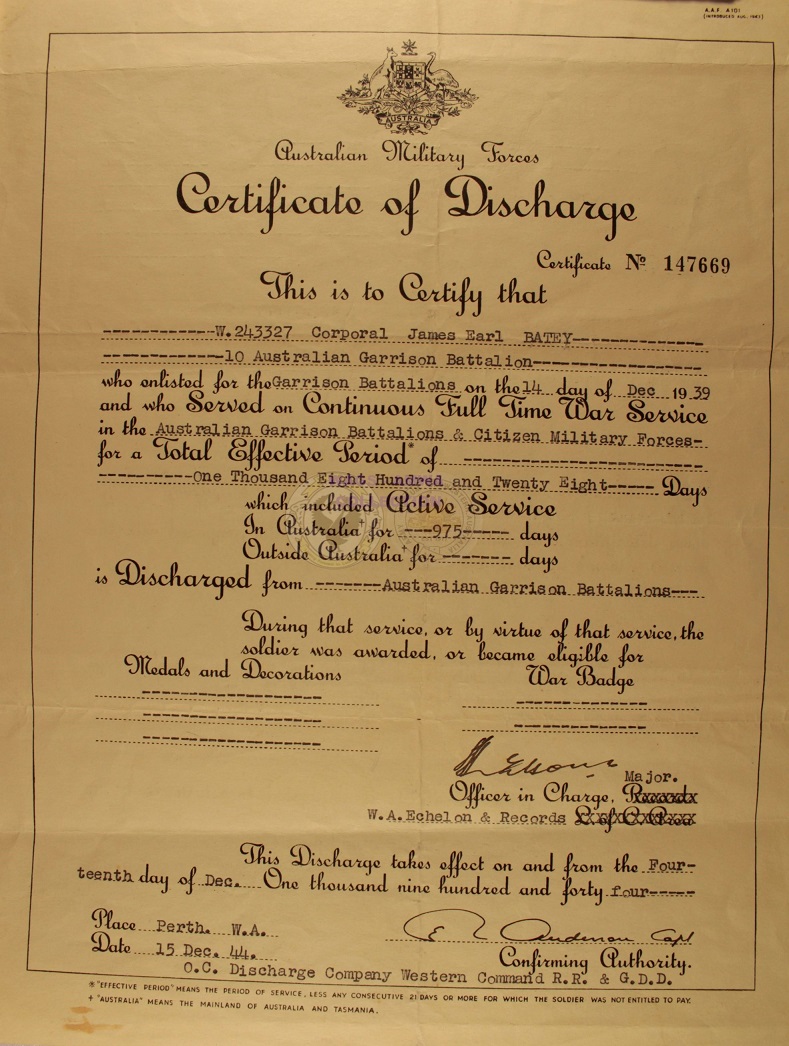 A.A.F. A101
(INTRODUCED AUG. 1943)
AUSTRALIA
Australian Military Forces
Certificate of Discharge
Certificate № 147669
This is to Certify that
------------W.243327 Corporal James Earl BATEY-------------
------------10 Australian Garrison Battalion-----------------
who enlisted for the Garrison Battalions on the 14 day of Dec 1939
and who Served on Continuous Full Time War Service
in the Australian Garrison Battalions & Citizen Military Forces-
for a Total Effective Period* of ------------------------
----------One Thousand Eight Hundred and Twenty Eight----- Days
which included Active Service
In Australia+ for ---975----- days
Outside Australia+ for ------- days
is Discharged from -------Australian Garrison Battalions---
During that service, or by virtue of that service, the
soldier was awarded, or became eligible for
Medals and Decorations
War Badge
Major.
Officer in Charge, Records
W.A.Echelon & Records L of C Area
This Discharge takes effect on and from the Four-
teenth day of Dec. One thousand nine hundred and forty four-----
Place Perth. W.A.
E Anderson Capt
Date 15 Dec. 44.
Confirming Authority.
O.C. Discharge Company Western Command R.R. & G.D.D.
* "EFFECTIVE PERIOD" MEANS THE PERIOD OF SERVICE, LESS ANY CONSECUTIVE 21 DAYS OR MORE FOR WHICH THE SOLDIER WAS NOT ENTITLED TO PAY.
+ "AUSTRALIA" MEANS THE MAINLAND OF AUSTRALIA AND TASMANIA.